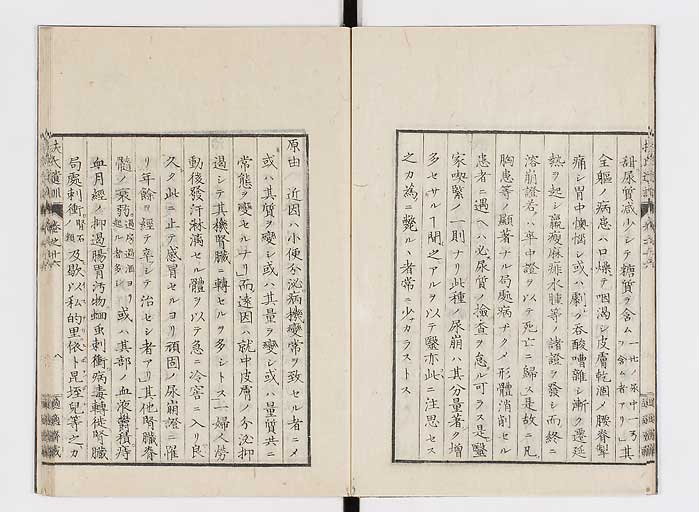 甜尿質減少シテ糖質ヲ含ム其
全軀ノ病患ハ口燥テ咽渇シ皮膚乾涸ノ腰脊掣
痛シ胃中懊憹シ或ハ劇ク呑酸嘈雜シ漸ク遷延
熱ヲ起シ羸瘦麻痺水腫等ノ諸證ヲ發シ而終ニ
溶崩證若クハ卒中證ヲ以テ死亡ニ歸ス是故ニ凡
胸患等ノ顯著ナル局處病ナクメ形體消削セル
患者ニ遇ヘハ必尿質ノ撿查ヲ怠ル可ラス是醫
家喫緊ノ一則ナリ此種ノ尿崩ハ其分量著ク增
多セサルヿ間之アルヲ以テ醫亦此ニ注思セス
之カ為ニ斃ルヽ者常ニ少カラストス
原由 近因ハ小便分泌病機變常ヲ致セル者ニメ
或ハ其質ヲ變シ或ハ其量ヲ變シ或ハ量質共ニ
常態ヲ變セルナリ而遠因ハ就中皮膚ノ分泌抑
遏シテ其機腎臟ニ轉セルヲ多シトス一婦人勞
動後發汗淋漓セル體ヲ以テ急ニ冷窖ニ入リ良
久ク此ニ止テ感冒セルヨリ頑固ノ尿崩證ニ罹
リ年餘ヲ經テ卒シテ治セシ者アリ其他腎臟脊
髓ノ衰弱過房過酒ヨリ起ル者多シ或ハ其部ノ血液鬱積痔
血月經ノ抑遏腸胃汚物蛔虫刺衝病毒轉徙腎臟
局處刺衝腎石類及歇以私的里依卜昆垤兒等之カ
扶氏遺訓 卷之十六
八